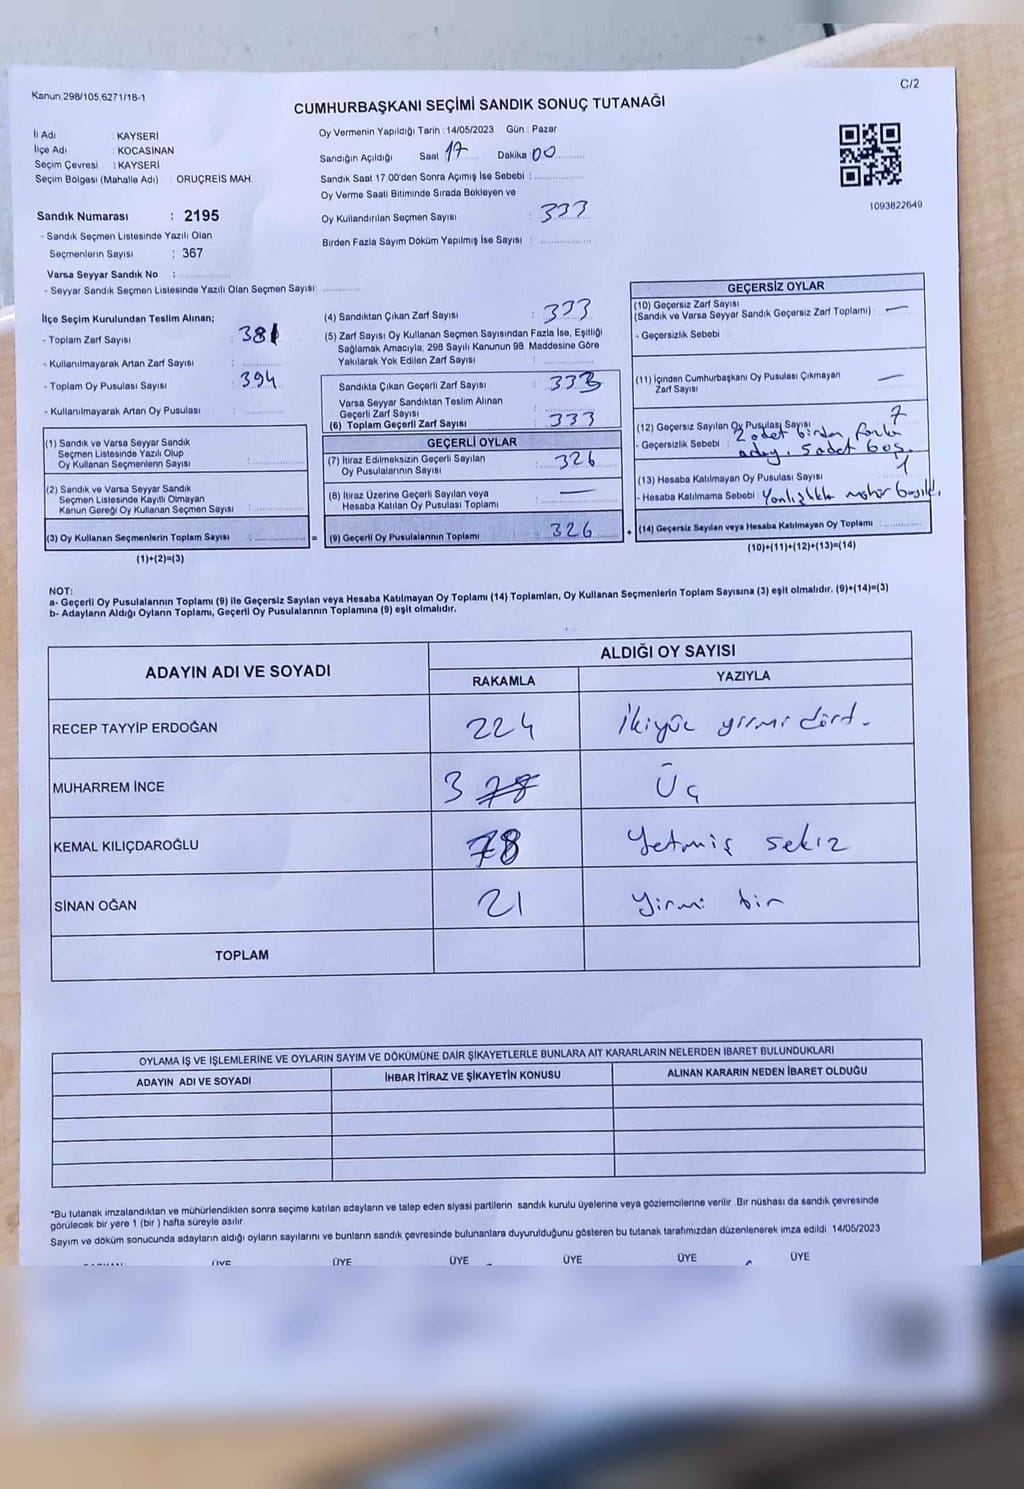 Kanun 298/105,6271/18-1
C/2
CUMHURBAŞKANI SEÇİMİ SANDIK SONUÇ TUTANAĞI
İl Adı : KAYSERİ
İlçe Adı : KOCASİNAN
Seçim Çevresi : KAYSERİ
Seçim Bölgesi (Mahalle Adı) : ORUÇREİS MAH
Sandık Numarası : 2195
- Sandık Seçmen Listesinde Yazılı Olan
Seçmenlerin Sayısı : 367
Varsa Seyyar Sandık No :
- Seyyar Sandık Seçmen Listesinde Yazılı Olan Seçmen Sayısı:
Oy Vermenin Yapıldığı Tarih : 14/05/2023 Gün : Pazar
Sandığın Açıldığı Saat 17 Dakika 00
Sandık Saat 17:00'den Sonra Açımış İse Sebebi :
Oy Verme Saati Bitiminde Sırada Bekleyen ve
Oy Kullandırılan Seçmen Sayısı : 333
Birden Fazla Sayım Döküm Yapılmış İse Sayısı :
1093822649
İlçe Seçim Kurulundan Teslim Alınan;
- Toplam Zarf Sayısı : 381
- Kullanılmayarak Artan Zarf Sayısı :
- Toplam Oy Pusulası Sayısı : 394
- Kullanılmayarak Artan Oy Pusulası :
(1) Sandık ve Varsa Seyyar Sandık
Seçmen Listesinde Yazılı Olup
Oy Kullanan Seçmenlerin Sayısı :
(2) Sandık ve Varsa Seyyar Sandık
Seçmen Listesinde Kayıtlı Olmayan
Kanun Gereği Oy Kullanan Seçmen Sayısı :
(3) Oy Kullanan Seçmenlerin Toplam Sayısı : =
(1)+(2)=(3)
(4) Sandıktan Çıkan Zarf Sayısı : 333
(5) Zarf Sayısı Oy Kullanan Seçmen Sayısından Fazla İse, Eşitliği
Sağlamak Amacıyla, 298 Sayılı Kanunun 98. Maddesine Göre
Yakılarak Yok Edilen Zarf Sayısı :
Sandıkta Çıkan Geçerli Zarf Sayısı : 333
Varsa Seyyar Sandıktan Teslim Alınan
Geçerli Zarf Sayısı :
(6) Toplam Geçerli Zarf Sayısı : 333
GEÇERLİ OYLAR
(7) İtiraz Edilmeksizin Geçerli Sayılan
Oy Pusulalarının Sayısı : 326
(8) İtiraz Üzerine Geçerli Sayılan veya
Hesaba Katılan Oy Pusulası Toplamı : —
(9) Geçerli Oy Pusulalarının Toplamı : 326 +
GEÇERSİZ OYLAR
(10) Geçersiz Zarf Sayısı
(Sandık ve Varsa Seyyar Sandık Geçersiz Zarf Toplamı) : —
- Geçersizlik Sebebi :
(11) İçinden Cumhurbaşkanı Oy Pusulası Çıkmayan
Zarf Sayısı : —
(12) Geçersiz Sayılan Oy Pusulası Sayısı : 7
- Geçersizlik Sebebi : 2 adet birden fazla
aday, 5 adet boş.
(13) Hesaba Katılmayan Oy Pusulası Sayısı : 1
- Hesaba Katılmama Sebebi : Yanlışlıkla mühür basıldı.
(14) Geçersiz Sayılan veya Hesaba Katılmayan Oy Toplamı :
(10)+(11)+(12)+(13)=(14)
NOT:
a- Geçerli Oy Pusulalarının Toplamı (9) ile Geçersiz Sayılan veya Hesaba Katılmayan Oy Toplamı (14) Toplamları, Oy Kullanan Seçmenlerin Toplam Sayısına (3) eşit olmalıdır. (9)+(14)=(3)
b- Adayların Aldığı Oyların Toplamı, Geçerli Oy Pusulalarının Toplamına (9) eşit olmalıdır.
ADAYIN ADI VE SOYADI
ALDIĞI OY SAYISI
RAKAMLA YAZIYLA
RECEP TAYYİP ERDOĞAN 224 İkiyüz yirmi dört.
MUHARREM İNCE 3 78 Üç
KEMAL KILIÇDAROĞLU 78 Yetmiş sekiz
SİNAN OĞAN 21 Yirmi bir
TOPLAM
OYLAMA İŞ VE İŞLEMLERİNE VE OYLARIN SAYIM VE DÖKÜMÜNE DAİR ŞİKAYETLERLE BUNLARA AİT KARARLARIN NELERDEN İBARET BULUNDUKLARI
ADAYIN ADI VE SOYADI İHBAR İTİRAZ VE ŞİKAYETİN KONUSU ALINAN KARARIN NEDEN İBARET OLDUĞU
*Bu tutanak imzalandıktan ve mühürlendikten sonra seçime katılan adayların ve talep eden siyasi partilerin sandık kurulu üyelerine veya gözlemcilerine verilir. Bir nüshası da sandık çevresinde
görülecek bir yere 1 (bir) hafta süreyle asılır.
Sayım ve döküm sonucunda adayların aldığı oyların sayılarını ve bunların sandık çevresinde bulunanlara duyurulduğunu gösteren bu tutanak tarafımızdan düzenlenerek imza edildi. 14/05/2023
BAŞKAN ÜYE ÜYE ÜYE ÜYE ÜYE ÜYE